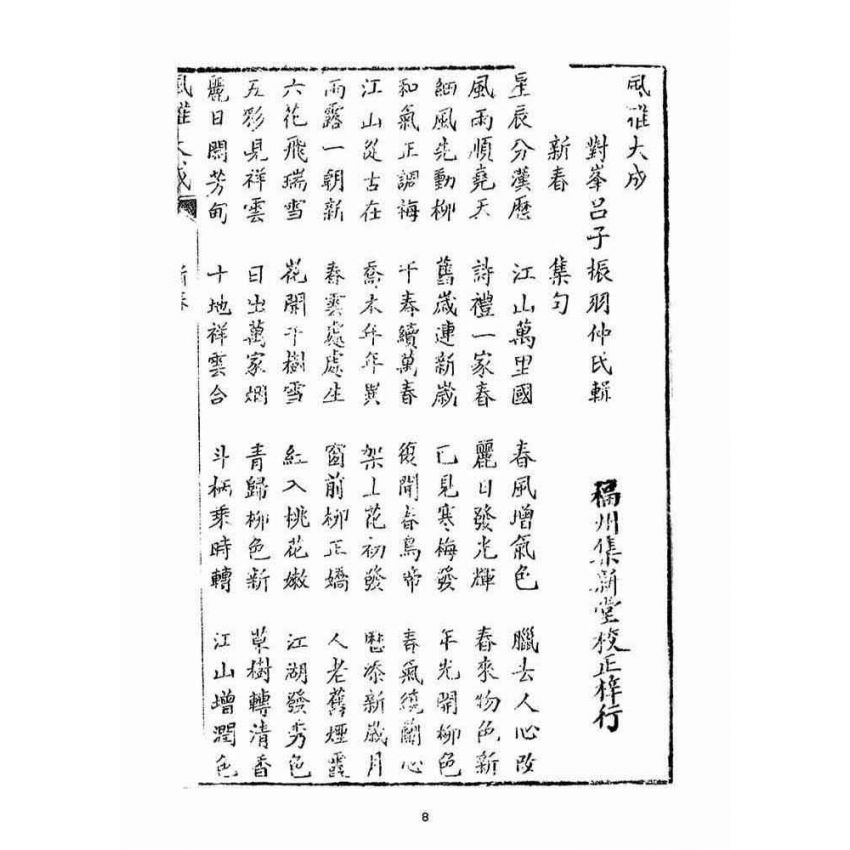 風雅大成
對峯呂子振羽仲氏輯 福州集新堂校正梓行
新春 集句
星辰分漢歷 江山萬里國 春風增氣色 臘去人心改
風雨順堯天 詩禮一家春 麗日發光輝 春來物色新
細風先動柳 舊歲連新歲 已見寒梅發 年光開柳色
和氣正調梅 千春續萬春 復聞春鳥啼 春氣繞蘭心
江山從古在 喬木年年異 架上花初發 曆添新歲月
雨露一朝新 春雲處處生 窗前柳正嬌 人老舊煙霞
六花飛瑞雪 花開千樹雪 紅入桃花嫩 江湖發秀色
五彩見祥雲 日出萬家烟 青歸柳色新 草樹轉清香
麗日開芳甸 十地祥雲合 斗柄乘時轉 江山增潤色
風雅大成
8